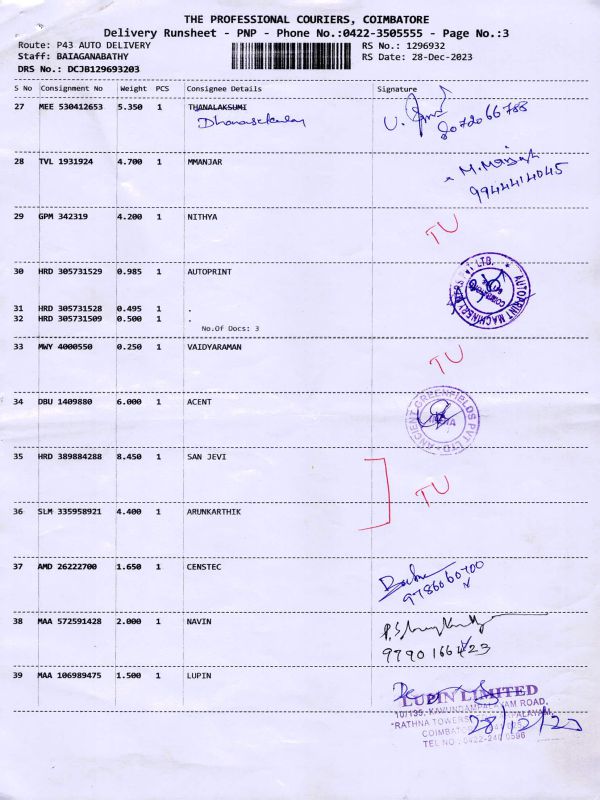 THE PROFESSIONAL COURIERS, COIMBATORE
Delivery Runsheet - PNP - Phone No.:0422-3505555 - Page No.:3
Route: P43 AUTO DELIVERY RS No.: 1296932
Staff: BAIAGANABATHY RS Date: 28-Dec-2023
DRS No.: DCJB129693203
S No Consignment No Weight PCS Consignee Details Signature
27 MEE 530412653 5.350 1 THANALAKSUMI
Dhanasekaran
28 TVL 1931924 4.700 1 MMANJAR
9944414045
29 GPM 342319 4.200 1 NITHYA TU
30 HRD 305731529 0.985 1 AUTOPRINT
31 HRD 305731528 0.495 1 .
32 HRD 305731509 0.500 1 .
No.Of Docs: 3
AUTOPRINT MACHINERY
33 MWY 4000550 0.250 1 VAIDYARAMAN TU
34 DBU 1409880 6.000 1 ACENT
ANCIENT GREENFIELDS PVT LTD
35 HRD 389884288 8.450 1 SAN JEVI
TU
36 SLM 335958921 4.400 1 ARUNKARTHIK
37 AMD 26222700 1.650 1 CENSTEC
9786060700
38 MAA 572591428 2.000 1 NAVIN
39 MAA 106989475 1.500 1 LUPIN
LUPIN LIMITED
10/135, KAVUNDAMPALAYAM ROAD,
"RATHNA TOWERS"
COIMBATORE
TEL NO : 0422-240 0596
28/12/23